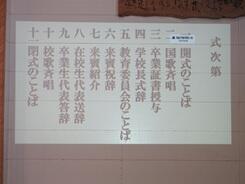 式次第
一 開式のことば
二 国歌斉唱
三 卒業証書授与
四 学校長式辞
五 教育委員会のことば
六 来賓祝辞
七 来賓紹介
八 在校生代表送辞
九 卒業生代表答辞
十 校歌斉唱
十一 閉式のことば